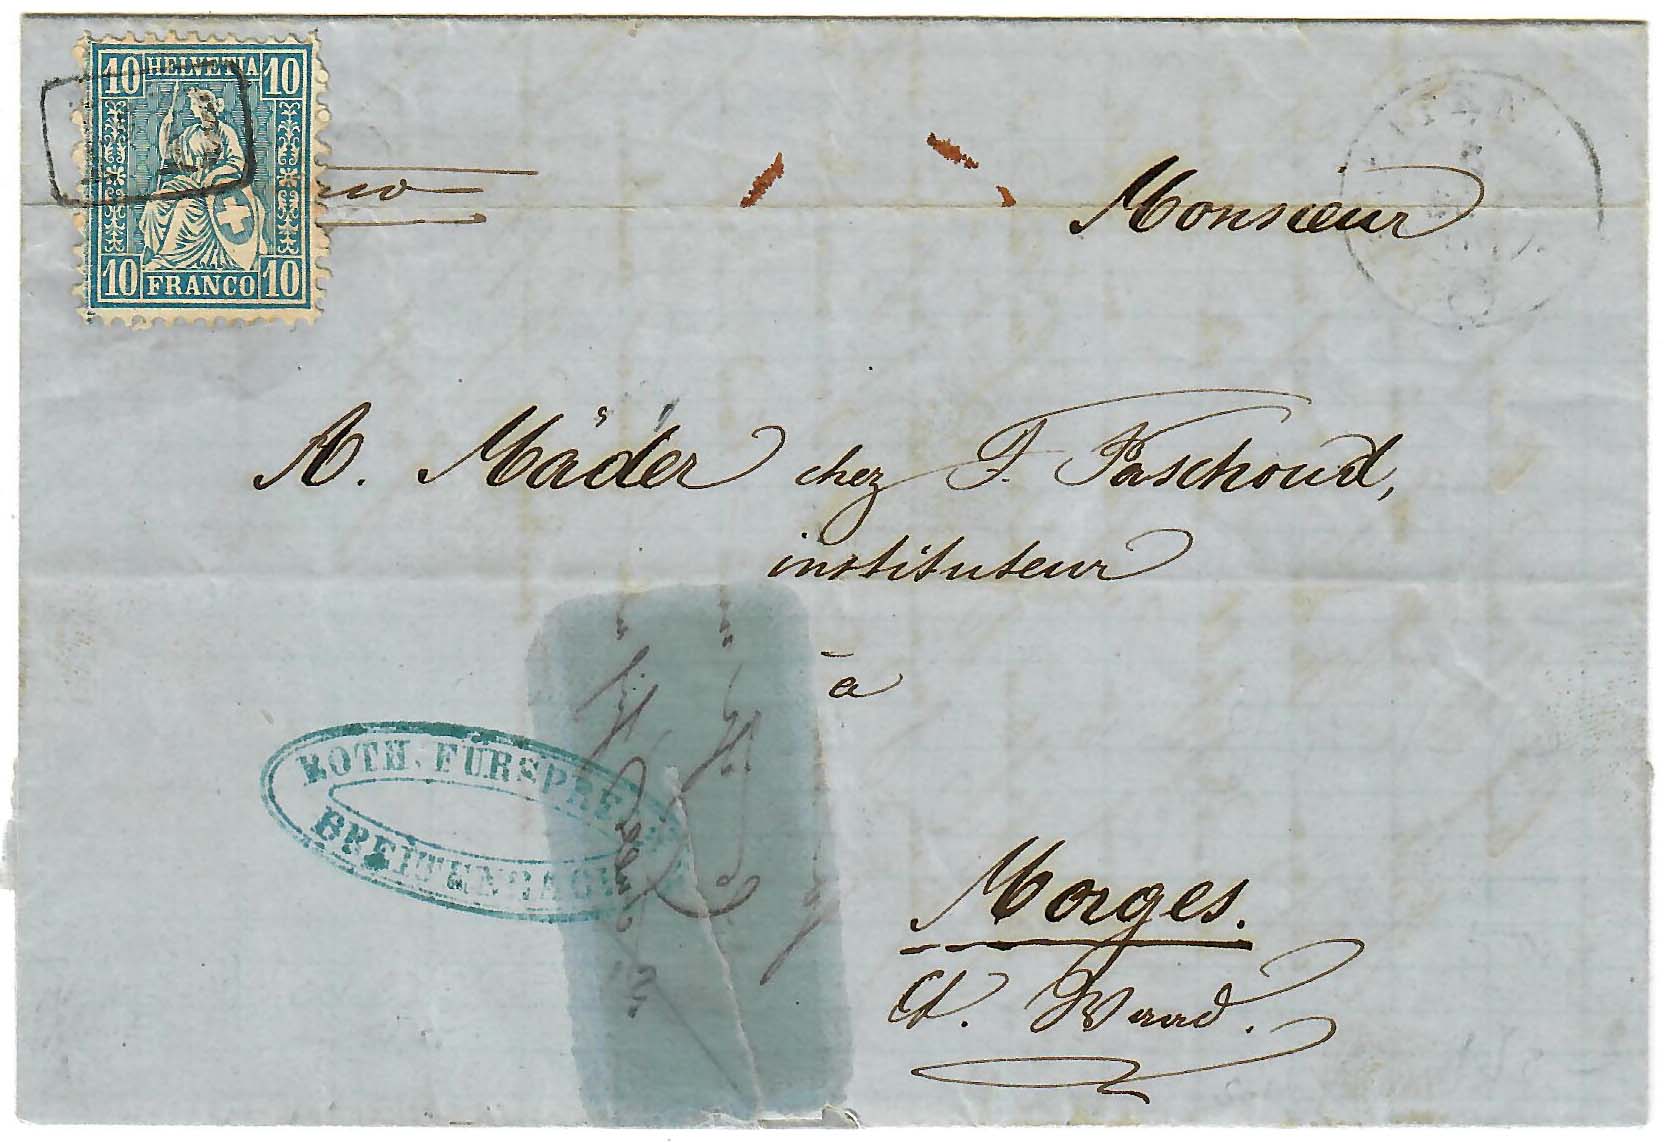 10 HELVETIA 10
10 FRANCO 10
Monsieur
A. Mäder chez F. Paschoud,
instituteur
à
Morges.
Ct. Waad.
ROTH. FÜRSPRE
BREITENRAC